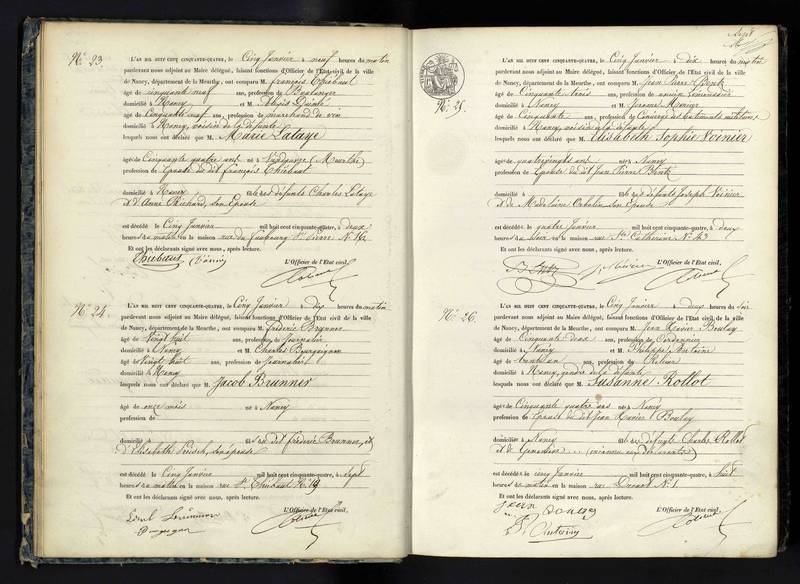 N° 23.
L'AN MIL HUIT CENT CINQUANTE-QUATRE, le Cinq Janvier à neuf heures du matin
pardevant nous adjoint au Maire délégué, faisant fonctions d'Officier de l'Etat civil de la ville
de Nancy, département de la Meurthe, ont comparu M. françois Thiébaut
âgé de cinquante neuf ans, profession de Boulanger
domicilié à Nancy et M.
âgé de Cinquante neuf ans, profession de marchand de vin
domicilié à Nancy, voisin de la défunte
lesquels nous ont déclaré que M. Marie Lataye
âgée de Cinquante quatre ans née à (Meurthe)
profession de Epouse du dit françois Thiébaut
domicilié à Nancy fille des défunts Charles Lataye
et d'Anne Richard, son Epouse
est décédé le Cinq Janvier mil huit cent cinquante-quatre, à deux
heures du matin en la maison rue du faubourg St. Pierre N° 16
Et ont les déclarants signé avec nous, après lecture.
Thiebaut
L'Officier de l'Etat civil,
N° 24.
L'AN MIL HUIT CENT CINQUANTE-QUATRE, le Cinq Janvier à dix heures du matin
pardevant nous adjoint au Maire délégué, faisant fonctions d'Officier de l'Etat civil de la ville
de Nancy, département de la Meurthe, ont comparu M. Fréderic Brunner
âgé de Vingt huit ans, profession de Journalier
domicilié à Nancy et M. Charles Bourguignon
âgé de Vingt huit ans, profession de Journalier
domicilié à Nancy
lesquels nous ont déclaré que M. Jacob Brunner
âgé de onze mois né à Nancy
profession de
domicilié à fils du dit fréderic Brunner, et
d'Elisabeth son épouse
est décédé le Cinq Janvier mil huit cent cinquante-quatre, à sept
heures du matin en la maison rue St. Thiébaut N° 19
Et ont les déclarants signé avec nous, après lecture.
L'Officier de l'Etat civil,
N° 25.
L'AN MIL HUIT CENT CINQUANTE-QUATRE, le Cinq Janvier à dix heures du matin
pardevant nous adjoint au Maire délégué, faisant fonctions d'Officier de l'Etat civil de la ville
de Nancy, département de la Meurthe, ont comparu M. Jean Pierre
âgé de Cinquante trois ans, profession de ancien
domicilié à Nancy et M. Jerome
âgé de Cinquante ans, profession de Concierge des batiments militaires
domicilié à Nancy, voisin de la défunte
lesquels nous ont déclaré que M. Elisabeth Sophie Voinier
âgée de quatrevingts ans née à Nancy
profession de Epouse du dit Jean Pierre
domicilié à fille des défunts Joseph Voinier
et de Madelaine son Epouse
est décédé le quatre Janvier mil huit cent cinquante-quatre, à deux
heures du soir en la maison rue Ste. Catherine N° 43
Et ont les déclarants signé avec nous, après lecture.
L'Officier de l'Etat civil,
N° 26.
L'AN MIL HUIT CENT CINQUANTE-QUATRE, le Cinq Janvier à deux heures du soir
pardevant nous adjoint au Maire délégué, faisant fonctions d'Officier de l'Etat civil de la ville
de Nancy, département de la Meurthe, ont comparu M. Jean Xavier Boulay
âgé de Cinquante deux ans, profession de Cordonnier
domicilié à Nancy et M. Philippe Antoine
âgé de trente un ans, profession de Relieur
domicilié à Nancy, gendre de la défunte
lesquels nous ont déclaré que M. Susanne Rollot
âgée de Cinquante quatre ans née à Nancy
profession de Epouse du dit Jean Xavier Boulay
domiciliée à Nancy fille des défunts Charles Rollot
et de Geneviève
est décédé le cinq Janvier mil huit cent cinquante-quatre, à huit
heures du matin en la maison rue N° 1
Et ont les déclarants signé avec nous, après lecture.
Jean Boulay
Antoine
L'Officier de l'Etat civil,